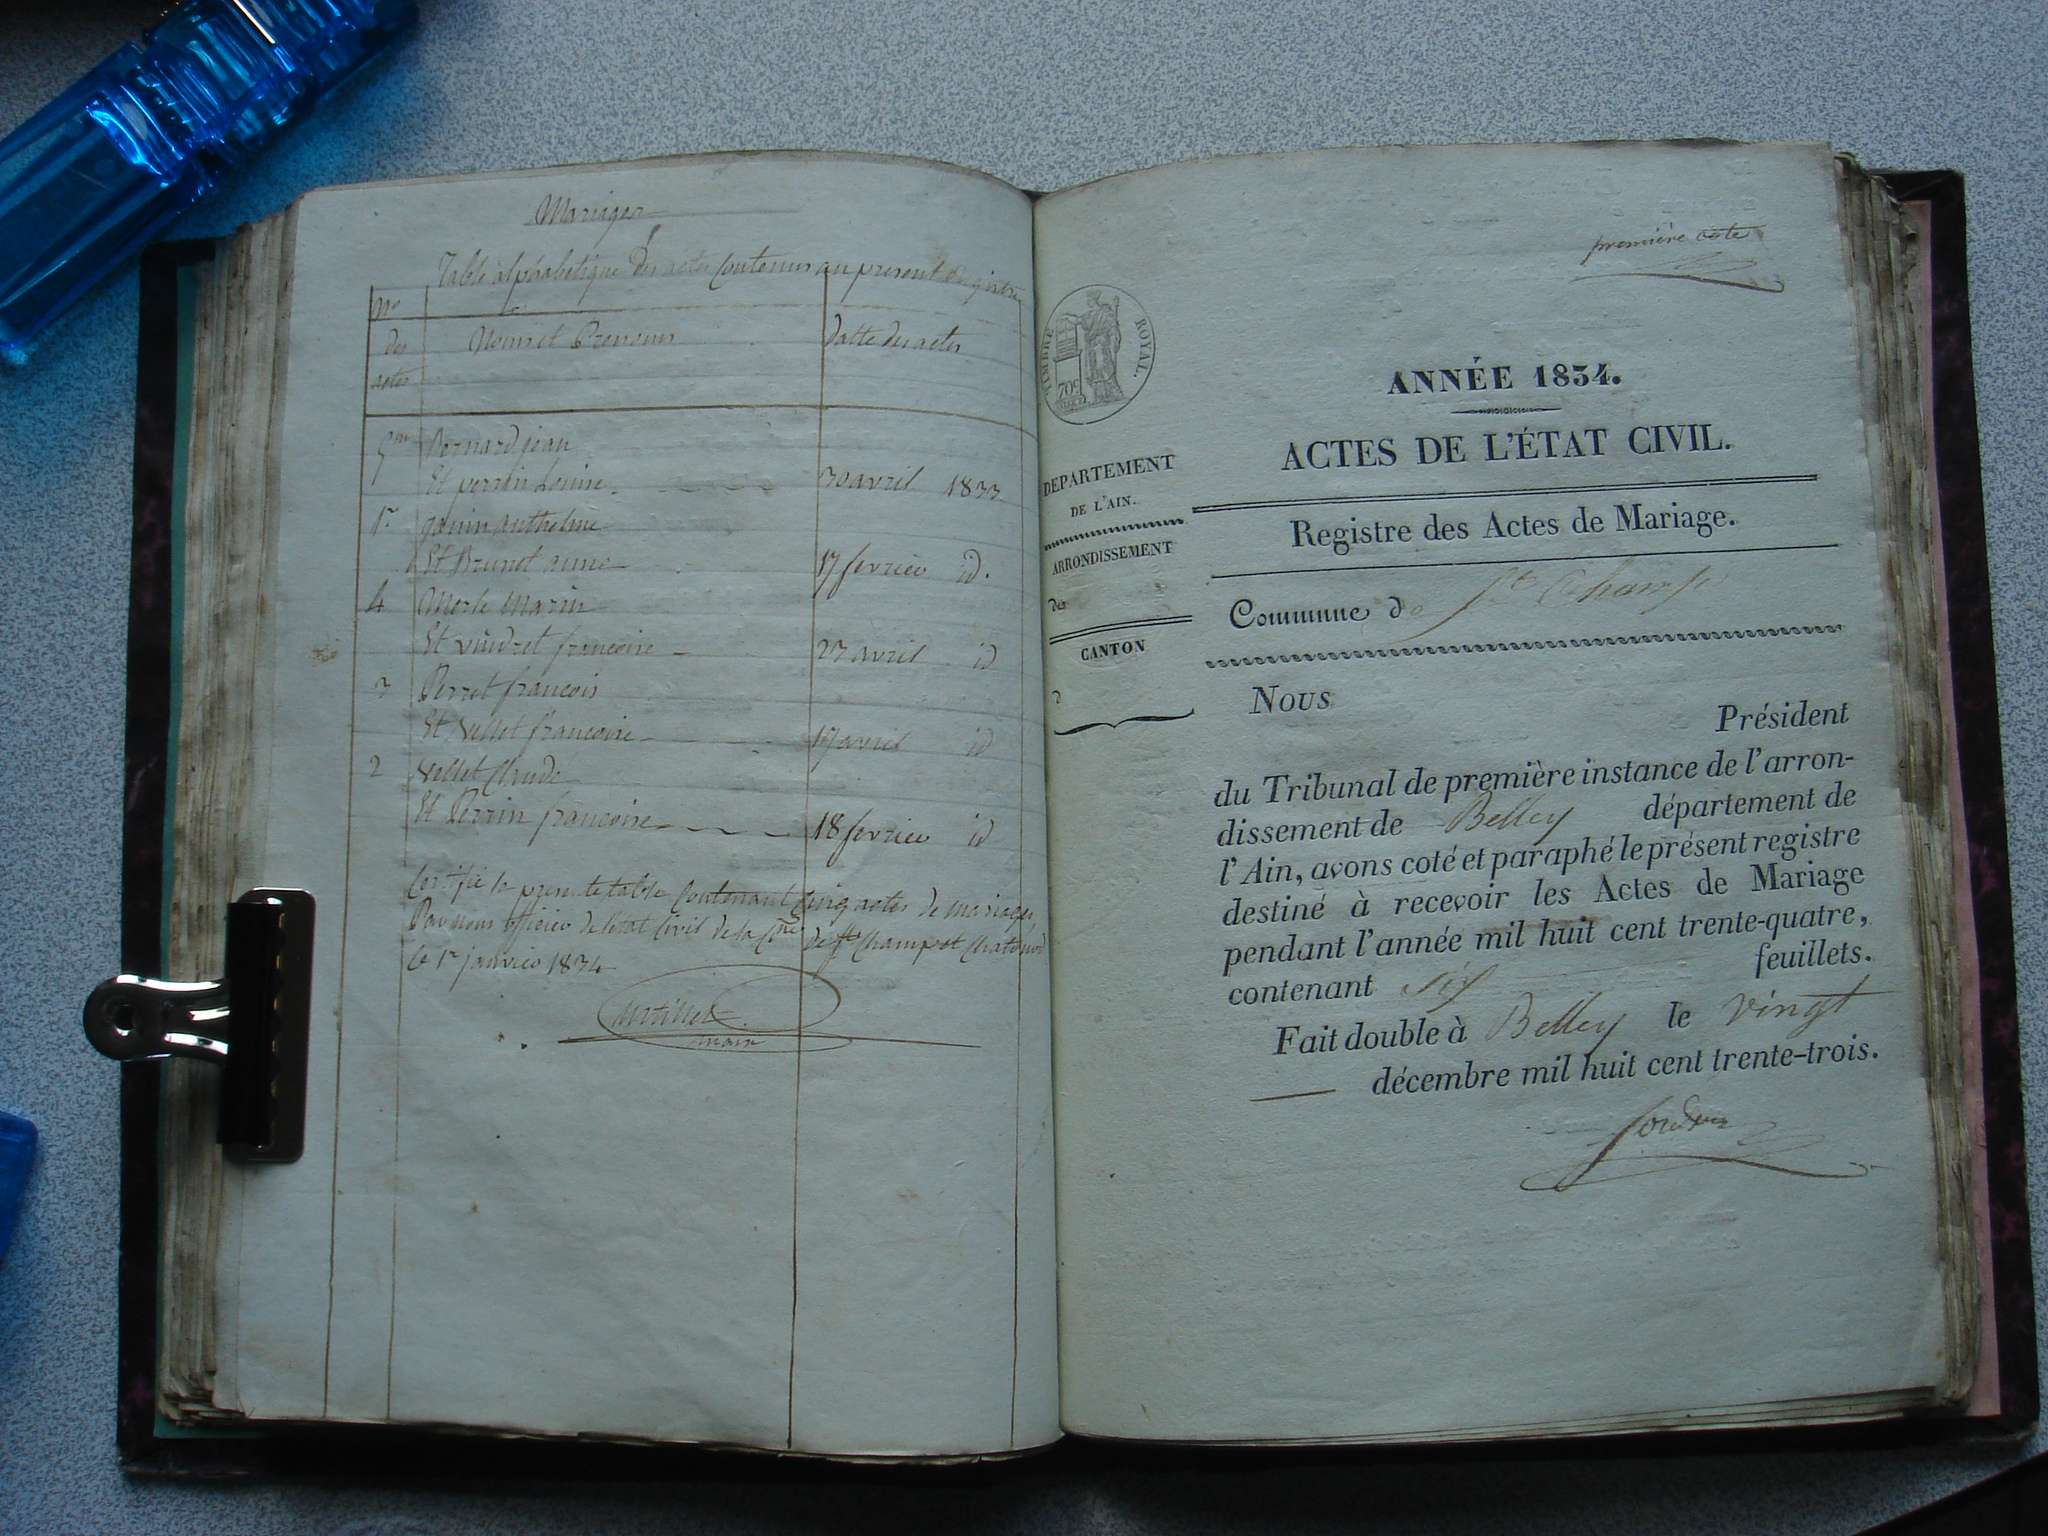 Mariages
Table alphabetique des actes contenus au present Registre
Nos
des
actes
Noms et Prenoms
datte des actes
5me Bernard jean
Et perrin Louise 30 avril 1833
1r anthelme
Et Brunet anne 17 fevrier id.
4 Merle Marin
Et francoise 23 avril id
3 Perret francois
Et Vellet francoise 17 avril id
2 Vellet Claude
Et Perrin francoise 18 fevrier id
Certifié la presente table Contenant Cinq actes de mariages
Par nous officier de l'état Civil de la Cne de St Champ et Chatonod
le 1r janvier 1834
maire
première cote
TIMBRE ROYAL.
70c
ANNÉE 1834.
ACTES DE L'ÉTAT CIVIL.
DEPARTEMENT
DE L'AIN.
ARRONDISSEMENT
de
CANTON
d
Registre des Actes de Mariage.
Commune de St Champ
Nous Président
du Tribunal de première instance de l'arron-
dissement de Belley département de
l'Ain, avons coté et paraphé le présent registre
destiné à recevoir les Actes de Mariage
pendant l'année mil huit cent trente-quatre,
contenant six feuillets.
Fait double à Belley le vingt
décembre mil huit cent trente-trois.